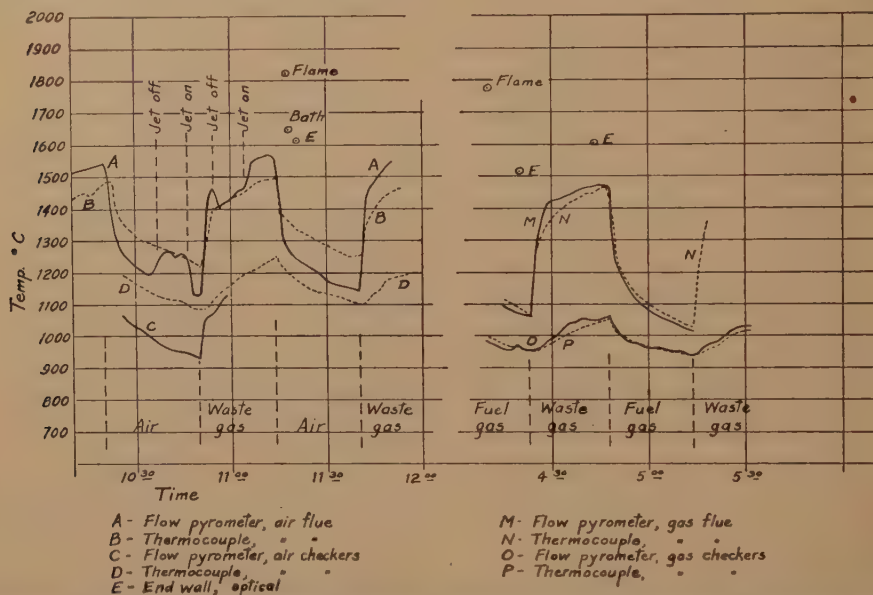 2000
1900
1800
1700
1600
1500
1400
1300
1200
1100
1000
900
800
700
Temp. °C
Jet off
Jet on
Jet off
Jet on
Flame
Bath
E
A
B
D
C
A
B
D
Air
Waste gas
Air
Waste gas
10 30
11 00
11 30
12 00
Time
Flame
E
E
M
N
N
O
P
Fuel gas
Waste gas
Fuel gas
Waste gas
4 30
5 00
5 30
A - Flow pyrometer, air flue
B - Thermocouple, " "
C - Flow pyrometer, air checkers
D - Thermocouple, " "
E - End wall, optical
M - Flow pyrometer, gas flue
N - Thermocouple, " "
O - Flow pyrometer, gas checkers
P - Thermocouple, " "